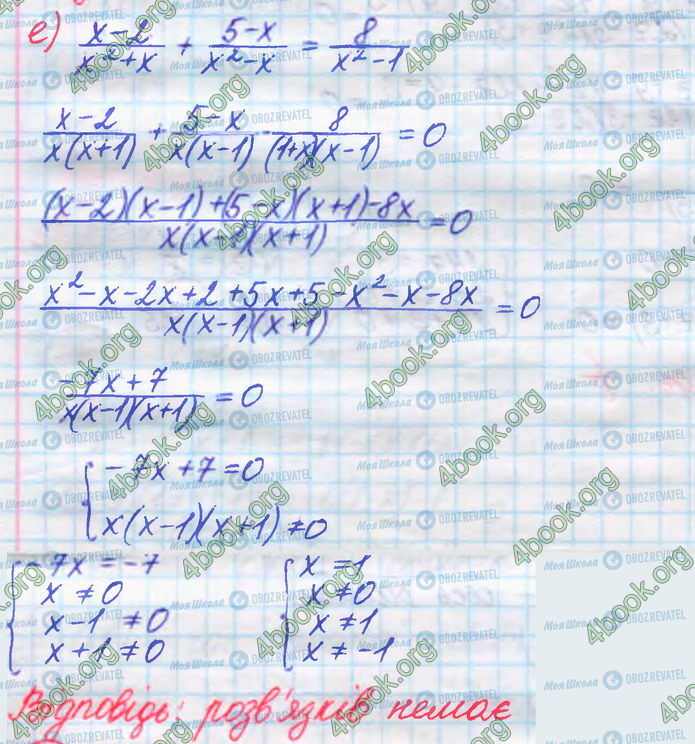 е) (x-2)/(x²+x) + (5-x)/(x²-x) = 8/(x²-1)
(x-2)/(x(x+1)) + (5-x)/(x(x-1)) - 8/((1+x)(x-1)) = 0
((x-2)(x-1)+(5-x)(x+1)-8x)/(x(x-1)(x+1)) = 0
(x²-x-2x+2+5x+5-x²-x-8x)/(x(x-1)(x+1)) = 0
(-7x+7)/(x(x-1)(x+1)) = 0
{ -7x+7=0
x(x-1)(x+1)≠0
{ -7x=-7
x≠0
x-1≠0
x+1≠0
{ x=1
x≠0
x≠1
x≠-1
Відповідь: розв'язків немає
4book.org
Моя Школа
OBOZREVATEL